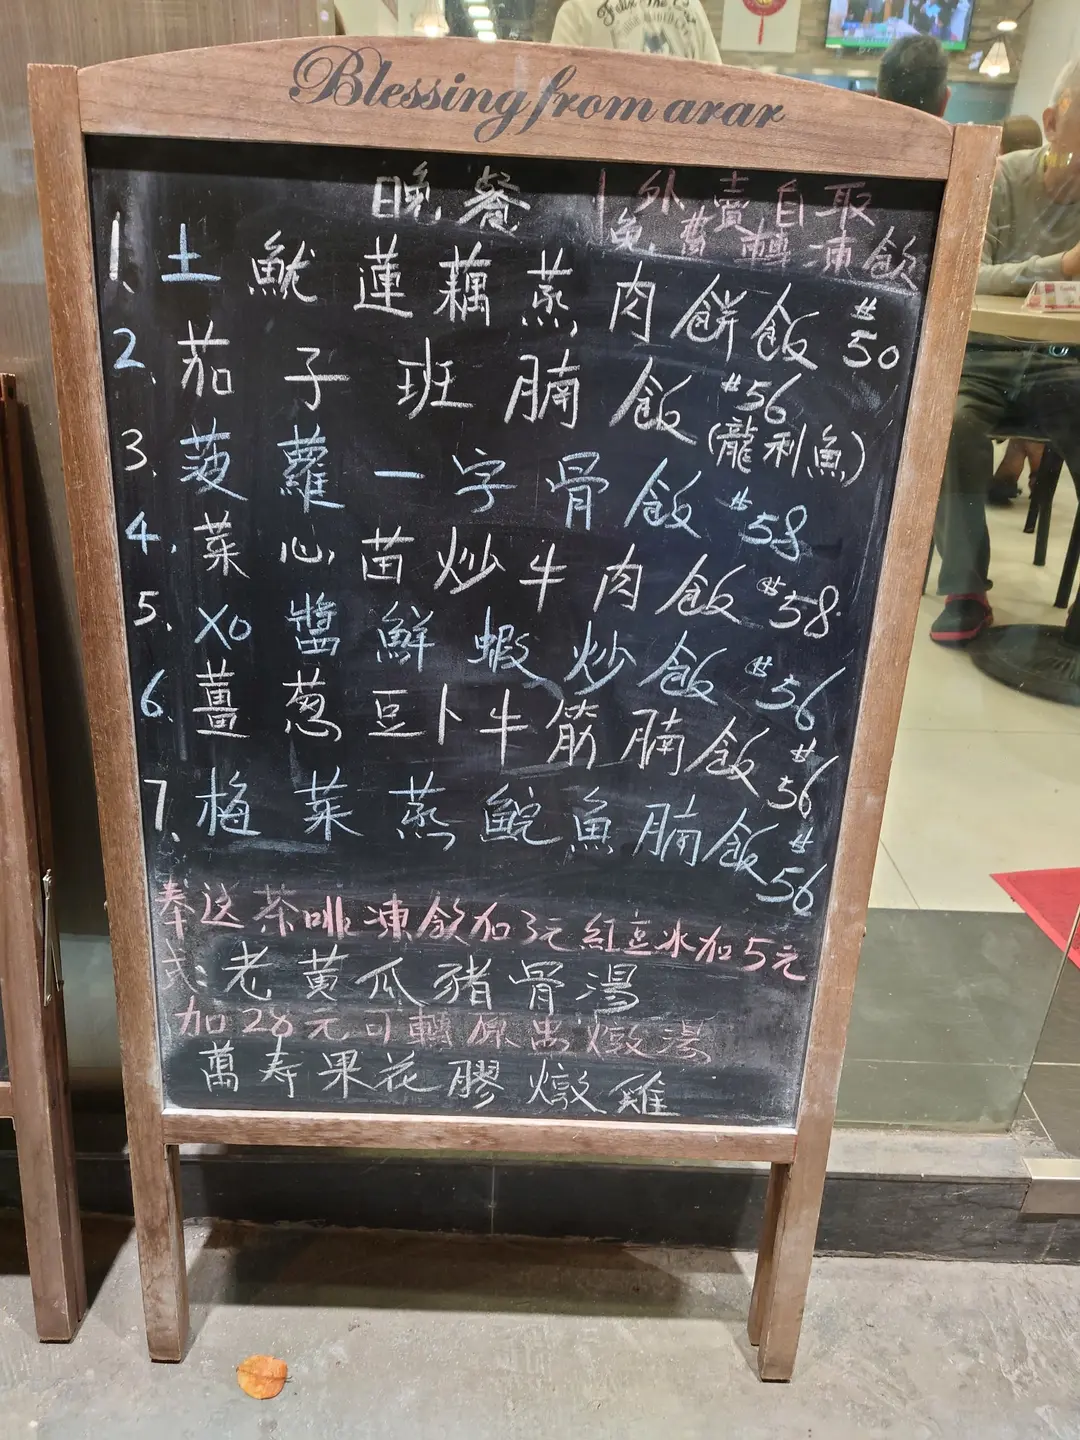 Blessing from arar
晚餐
外賣自取
免費轉凍飲
1、土魷蓮藕蒸肉餅飯 $50
2、茄子班腩飯 $56
(龍利魚)
3、菠蘿一字骨飯 $58
4、菜心苗炒牛肉飯 $58
5、XO醬鮮蝦炒飯 $56
6、薑葱豆卜牛筋腩飯 $56
7、梅菜蒸鯇魚腩飯 $56
奉送茶啡凍飲加3元紅豆冰加5元
式:老黃瓜豬骨湯
加28元可轉原盅燉湯
萬寿果花膠燉雞